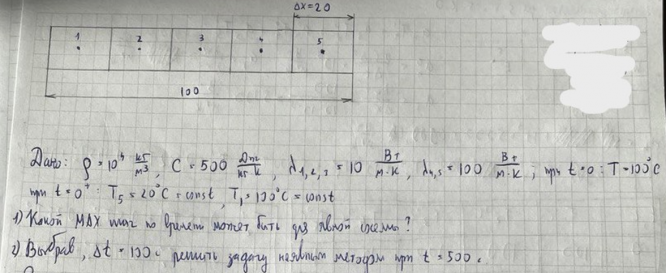 Δx=20
1 2 3 4 5
100
Дано: ρ = 10⁴ кг/м³; C = 500 Дж/кг К, λ₁,₂,₃ = 10 Вт/м·К, λ₄,₅ = 100 Вт/м·К; при t=0: T=100°C
при t=0⁺: T₅ = 20°C = const, T₁ = 100°C = const
1) Какой MAX шаг по времени может быть для явной схемы?
2) Выбрав, Δt = 100 с решить задачу неявным методом при t = 500 с